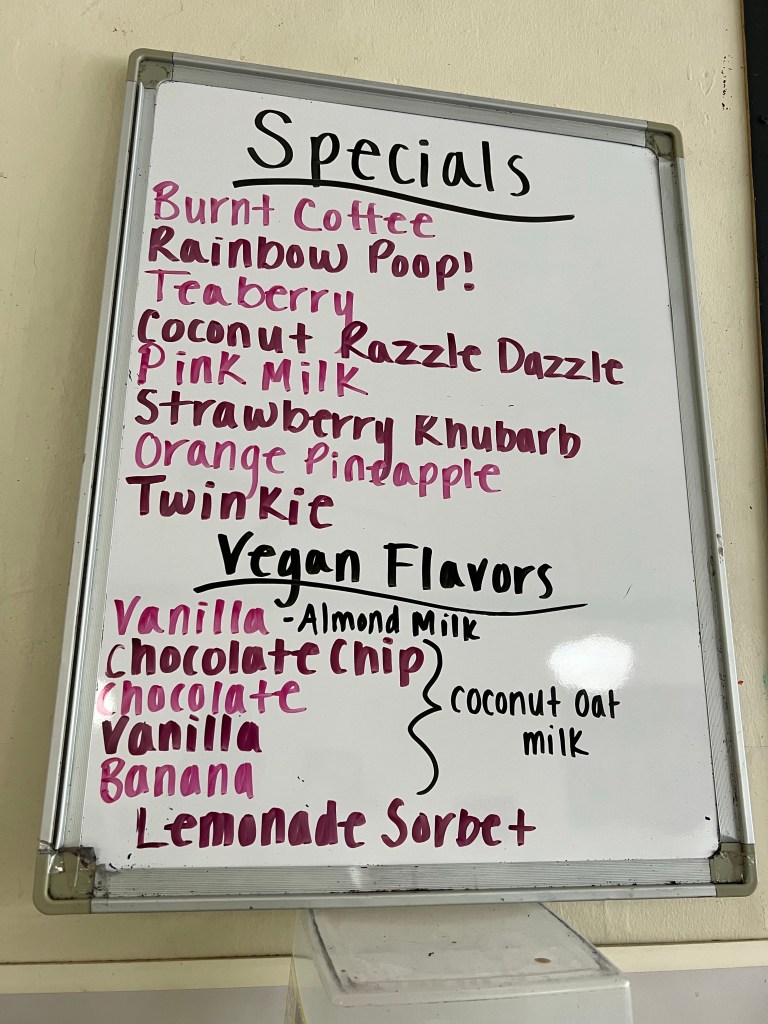 Specials
Burnt Coffee
Rainbow Poop!
Teaberry
Coconut Razzle Dazzle
Pink Milk
Strawberry Rhubarb
Orange Pineapple
Twinkie
Vegan Flavors
Vanilla - Almond Milk
Chocolate Chip
Chocolate
Vanilla
Banana
coconut oat
milk
Lemonade Sorbet